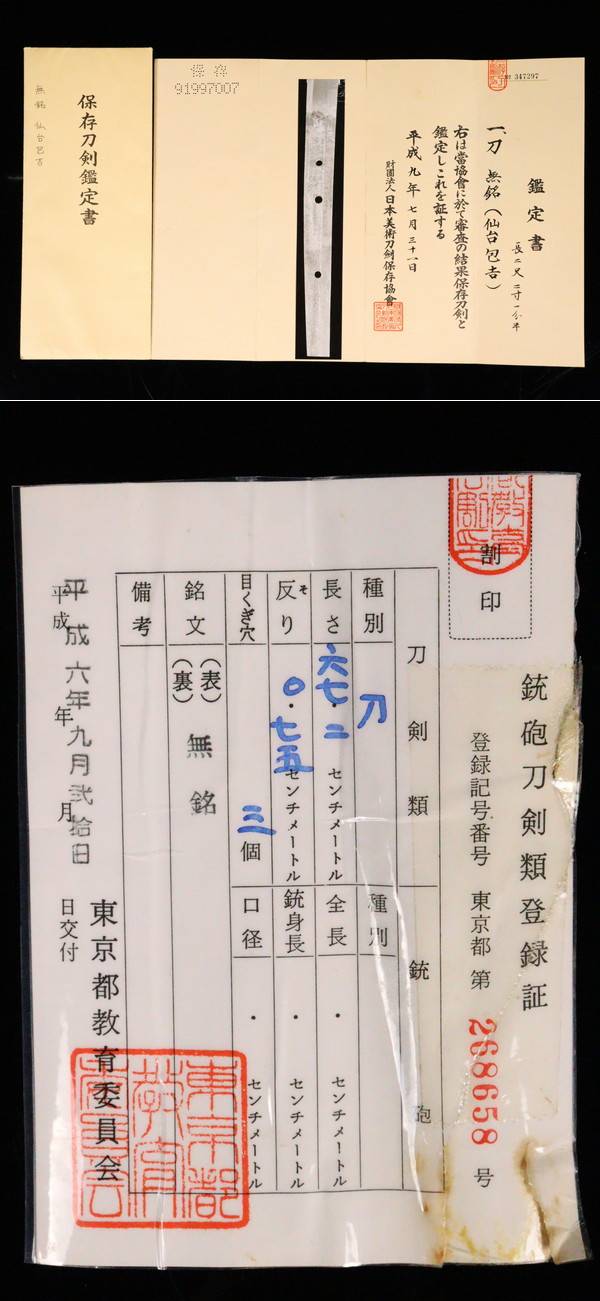 保存刀剣鑑定書
無銘 仙台包吉
保存
91997007
№ 347297
鑑定書
一、刀 無銘(仙台包吉)
長二尺二寸一分半
右は當協會に於て審査の結果保存刀剣と
鑑定しこれを証する
平成九年七月三十一日
財團法人日本美術刀劍保存協會
割印
銃砲刀剣類登録証
登録記号番号 東京都 第 268658 号
刀剣類
銃砲
種別 刀
種別
長さ 六七・二 センチメートル
全長 ・ センチメートル
反り 〇・七五 センチメートル
そ
銃身長 ・ センチメートル
目くぎ穴 三個
口径 ・ センチメートル
銘文 (表) 無銘
(裏)
備考
平成六年九月弐拾日
平成 年 月 日交付
東京都教育委員会
東京都教育委員会